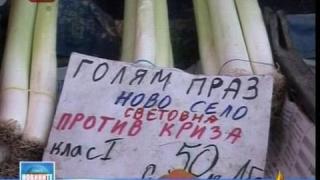 ГОЛЯМ ПРАЗ
НОВО СЕЛО
СВЕТОВНА
ПРОТИВ КРИЗА
клас I 50
НОВИНИТЕ